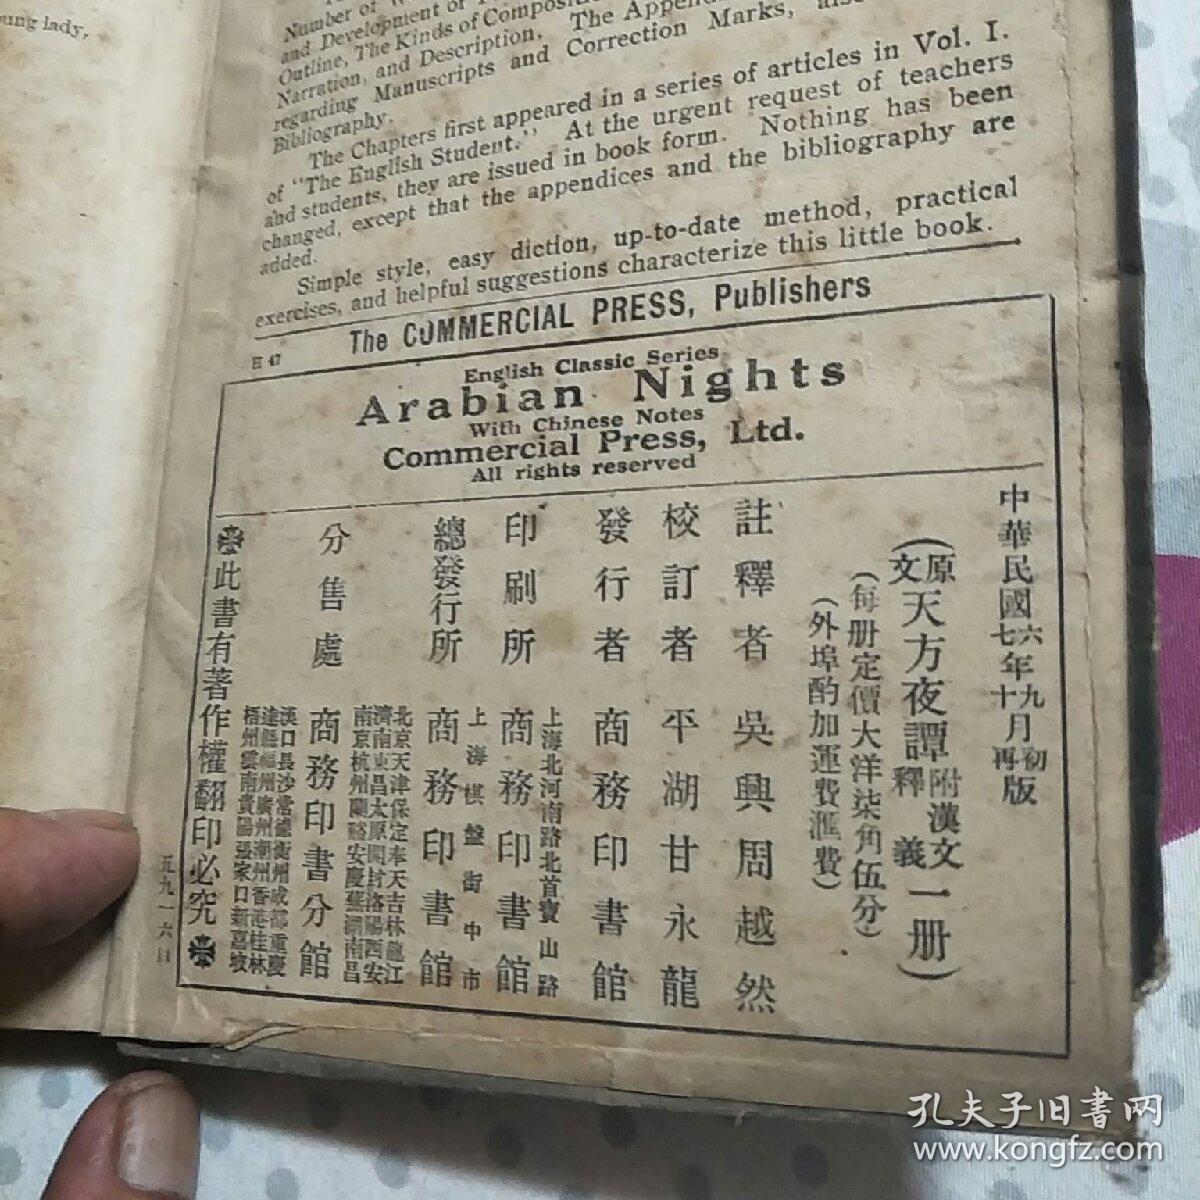 oung lady,
Number of
and Development of
Outline, The Kinds of Composition
Narration, and Description. The Appen
regarding Manuscripts and Correction Marks, also
Bibliography.
The Chapters first appeared in a series of articles in Vol. I.
of "The English Student." At the urgent request of teachers
and students, they are issued in book form. Nothing has been
changed, except that the appendices and the bibliography are
added.
Simple style, easy diction, up-to-date method, practical
exercises, and helpful suggestions characterize this little book.
The COMMERCIAL PRESS, Publishers
H 47
English Classic Series
Arabian Nights
With Chinese Notes
Commercial Press, Ltd.
All rights reserved
中華民國六年九月初版
七年十月再版
(原文天方夜譚附漢文釋義一册)
(每册定價大洋柒角伍分)
(外埠酌加運費滙費)
註釋者 吳興周越然
校訂者 平湖甘永龍
發行者 商務印書館
印刷所 上海北河南路北首寶山路 商務印書館
總發行所 上海棋盤街中市 商務印書館
分售處 北京天津保定奉天吉林龍江
濟南東昌太原開封洛陽西安
南京杭州蘭谿安慶蕪湖南昌
商務印書分館
漢口長沙常德衡州成都重慶
達縣福州廣州潮州香港桂林
梧州雲南貴陽張家口新嘉坡
此書有著作權翻印必究
五九一六
孔夫子旧書网
www.kongfz.com